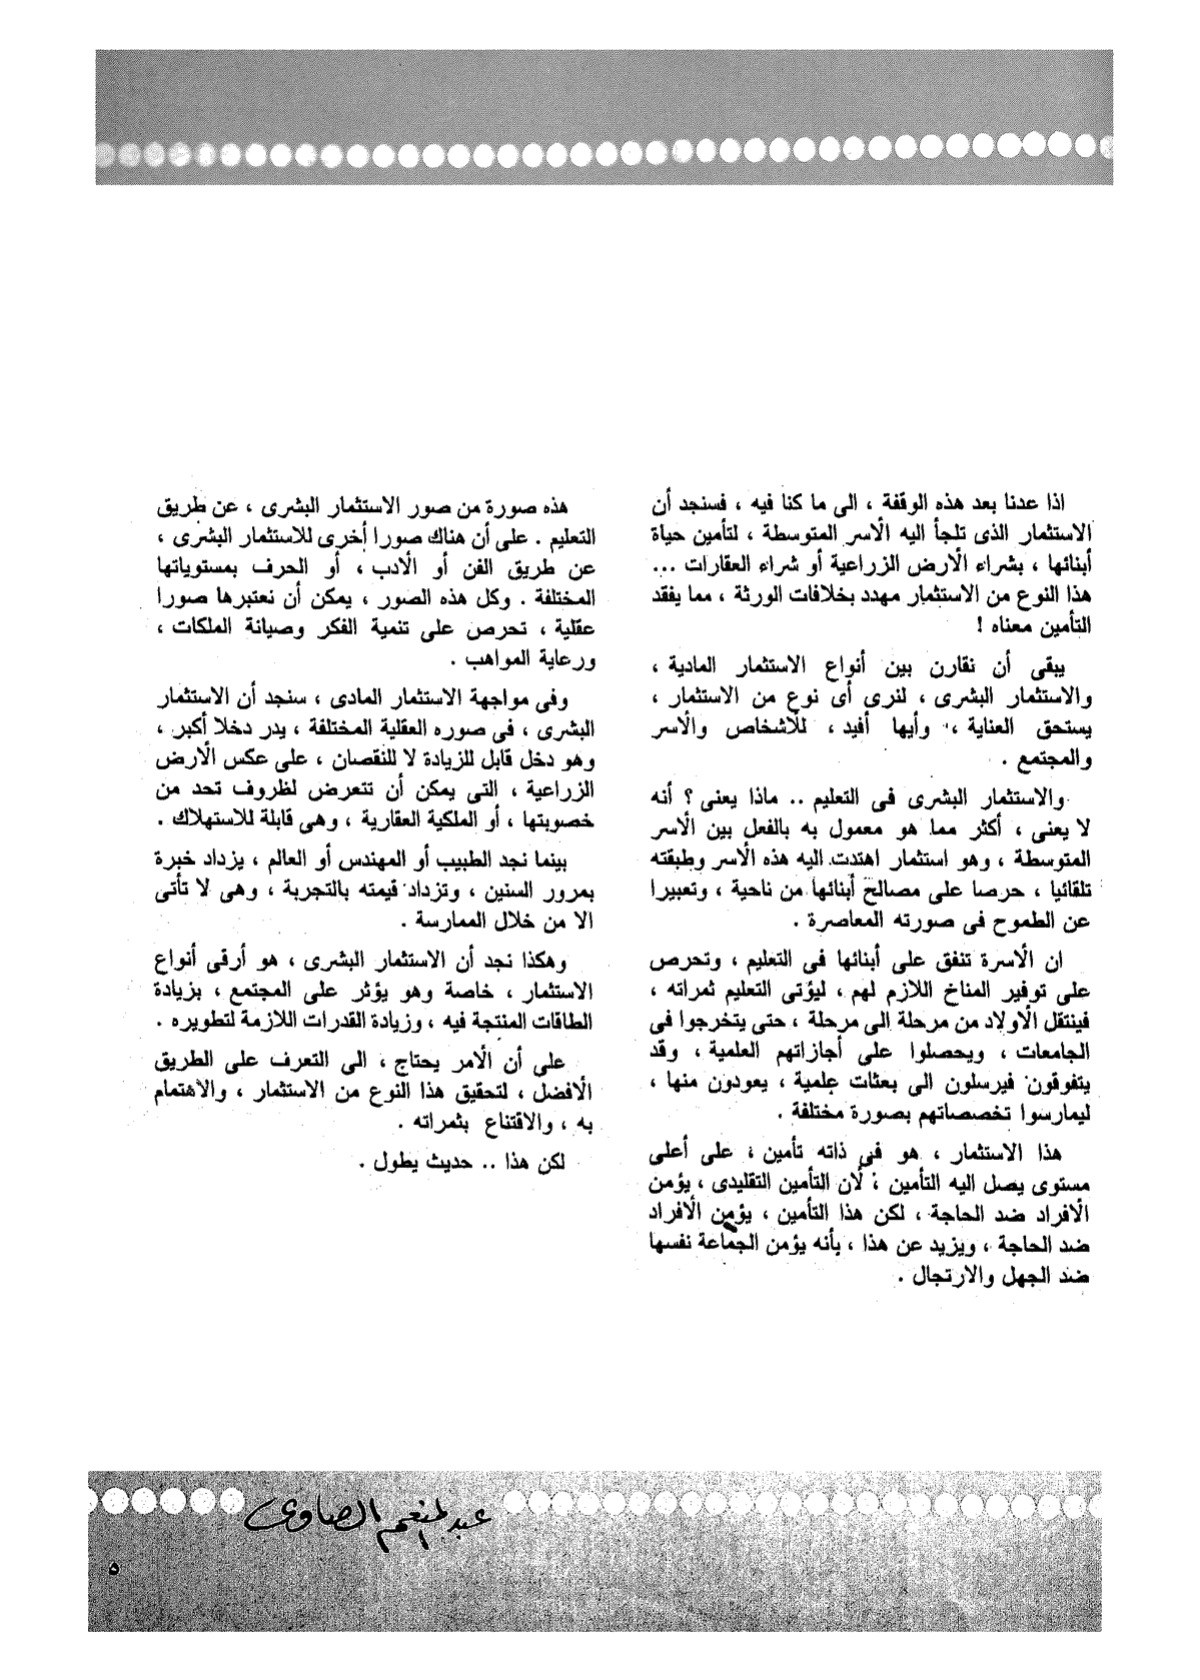 اذا عدنا بعد هذه الوقفة ، الى ما كنا فيه ، فسنجد أن
الاستثمار الذى تلجأ اليه الأسر المتوسطة ، لتأمين حياة
أبنائها ، بشراء الأرض الزراعية أو شراء العقارات ...
هذا النوع من الاستثمار مهدد بخلافات الورثة ، مما يفقد
التأمين معناه !
يبقى أن نقارن بين أنواع الاستثمار المادية ،
والاستثمار البشرى ، لنرى أى نوع من الاستثمار ،
يستحق العناية ، وأيها أفيد ، للأشخاص والأسر
والمجتمع .
والاستثمار البشرى فى التعليم .. ماذا يعنى ؟ أنه
لا يعنى ، أكثر مما هو معمول به بالفعل بين الأسر
المتوسطة ، وهو استثمار اهتدت اليه هذه الأسر وطبقته
تلقائيا ، حرصا على مصالح أبنائها من ناحية ، وتعبيرا
عن الطموح فى صورته المعاصرة .
ان الأسرة تنفق على أبنائها فى التعليم ، وتحرص
على توفير المناخ اللازم لهم ، ليؤتى التعليم ثمراته ،
فينتقل الأولاد من مرحلة الى مرحلة ، حتى يتخرجوا فى
الجامعات ، ويحصلوا على أجازاتهم العلمية ، وقد
يتفوقون فيرسلون الى بعثات علمية ، يعودون منها ،
ليمارسوا تخصصاتهم بصورة مختلفة .
هذا الاستثمار ، هو فى ذاته تأمين ، على أعلى
مستوى يصل اليه التأمين ، لأن التأمين التقليدى ، يؤمن
الأفراد ضد الحاجة ، لكن هذا التأمين ، يؤمن الأفراد
ضد الحاجة ، ويزيد عن هذا ، بأنه يؤمن الجماعة نفسها
ضد الجهل والارتجال .
هذه صورة من صور الاستثمار البشرى ، عن طريق
التعليم . على أن هناك صورا أخرى للاستثمار البشرى ،
عن طريق الفن أو الأدب ، أو الحرف بمستوياتها
المختلفة . وكل هذه الصور ، يمكن أن نعتبرها صورا
عقلية ، تحرص على تنمية الفكر وصيانة الملكات ،
ورعاية المواهب .
وفى مواجهة الاستثمار المادى ، سنجد أن الاستثمار
البشرى ، فى صوره العقلية المختلفة ، يدر دخلا أكبر ،
وهو دخل قابل للزيادة لا للنقصان ، على عكس الأرض
الزراعية ، التى يمكن أن تتعرض لظروف تحد من
خصوبتها ، أو الملكية العقارية ، وهى قابلة للاستهلاك .
بينما نجد الطبيب أو المهندس أو العالم ، يزداد خبرة
بمرور السنين ، وتزداد قيمته بالتجربة ، وهى لا تأتى
الا من خلال الممارسة .
وهكذا نجد أن الاستثمار البشرى ، هو أرقى أنواع
الاستثمار ، خاصة وهو يؤثر على المجتمع ، بزيادة
الطاقات المنتجة فيه ، وزيادة القدرات اللازمة لتطويره .
على أن الأمر يحتاج ، الى التعرف على الطريق
الأفضل ، لتحقيق هذا النوع من الاستثمار ، والاهتمام
به ، والاقتناع بثمراته .
لكن هذا .. حديث يطول .
عبد المنعم الصاوى
٥